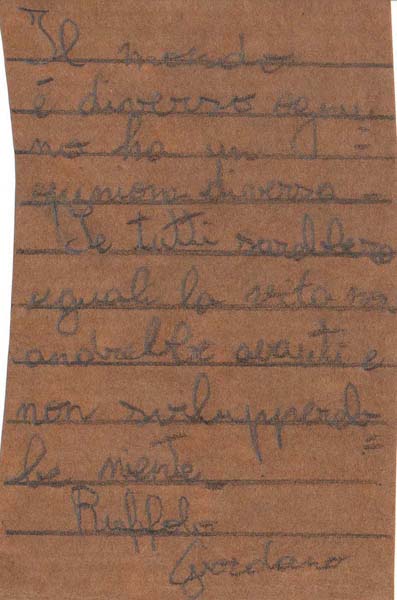 Il mondo
è diverso ogniu
no ha un
opinion diversa
Se tutti sarebbero
uguali la vita non
andrebbe avanti e
non sviluppereb=
be niente
Ruffolo
Giordano